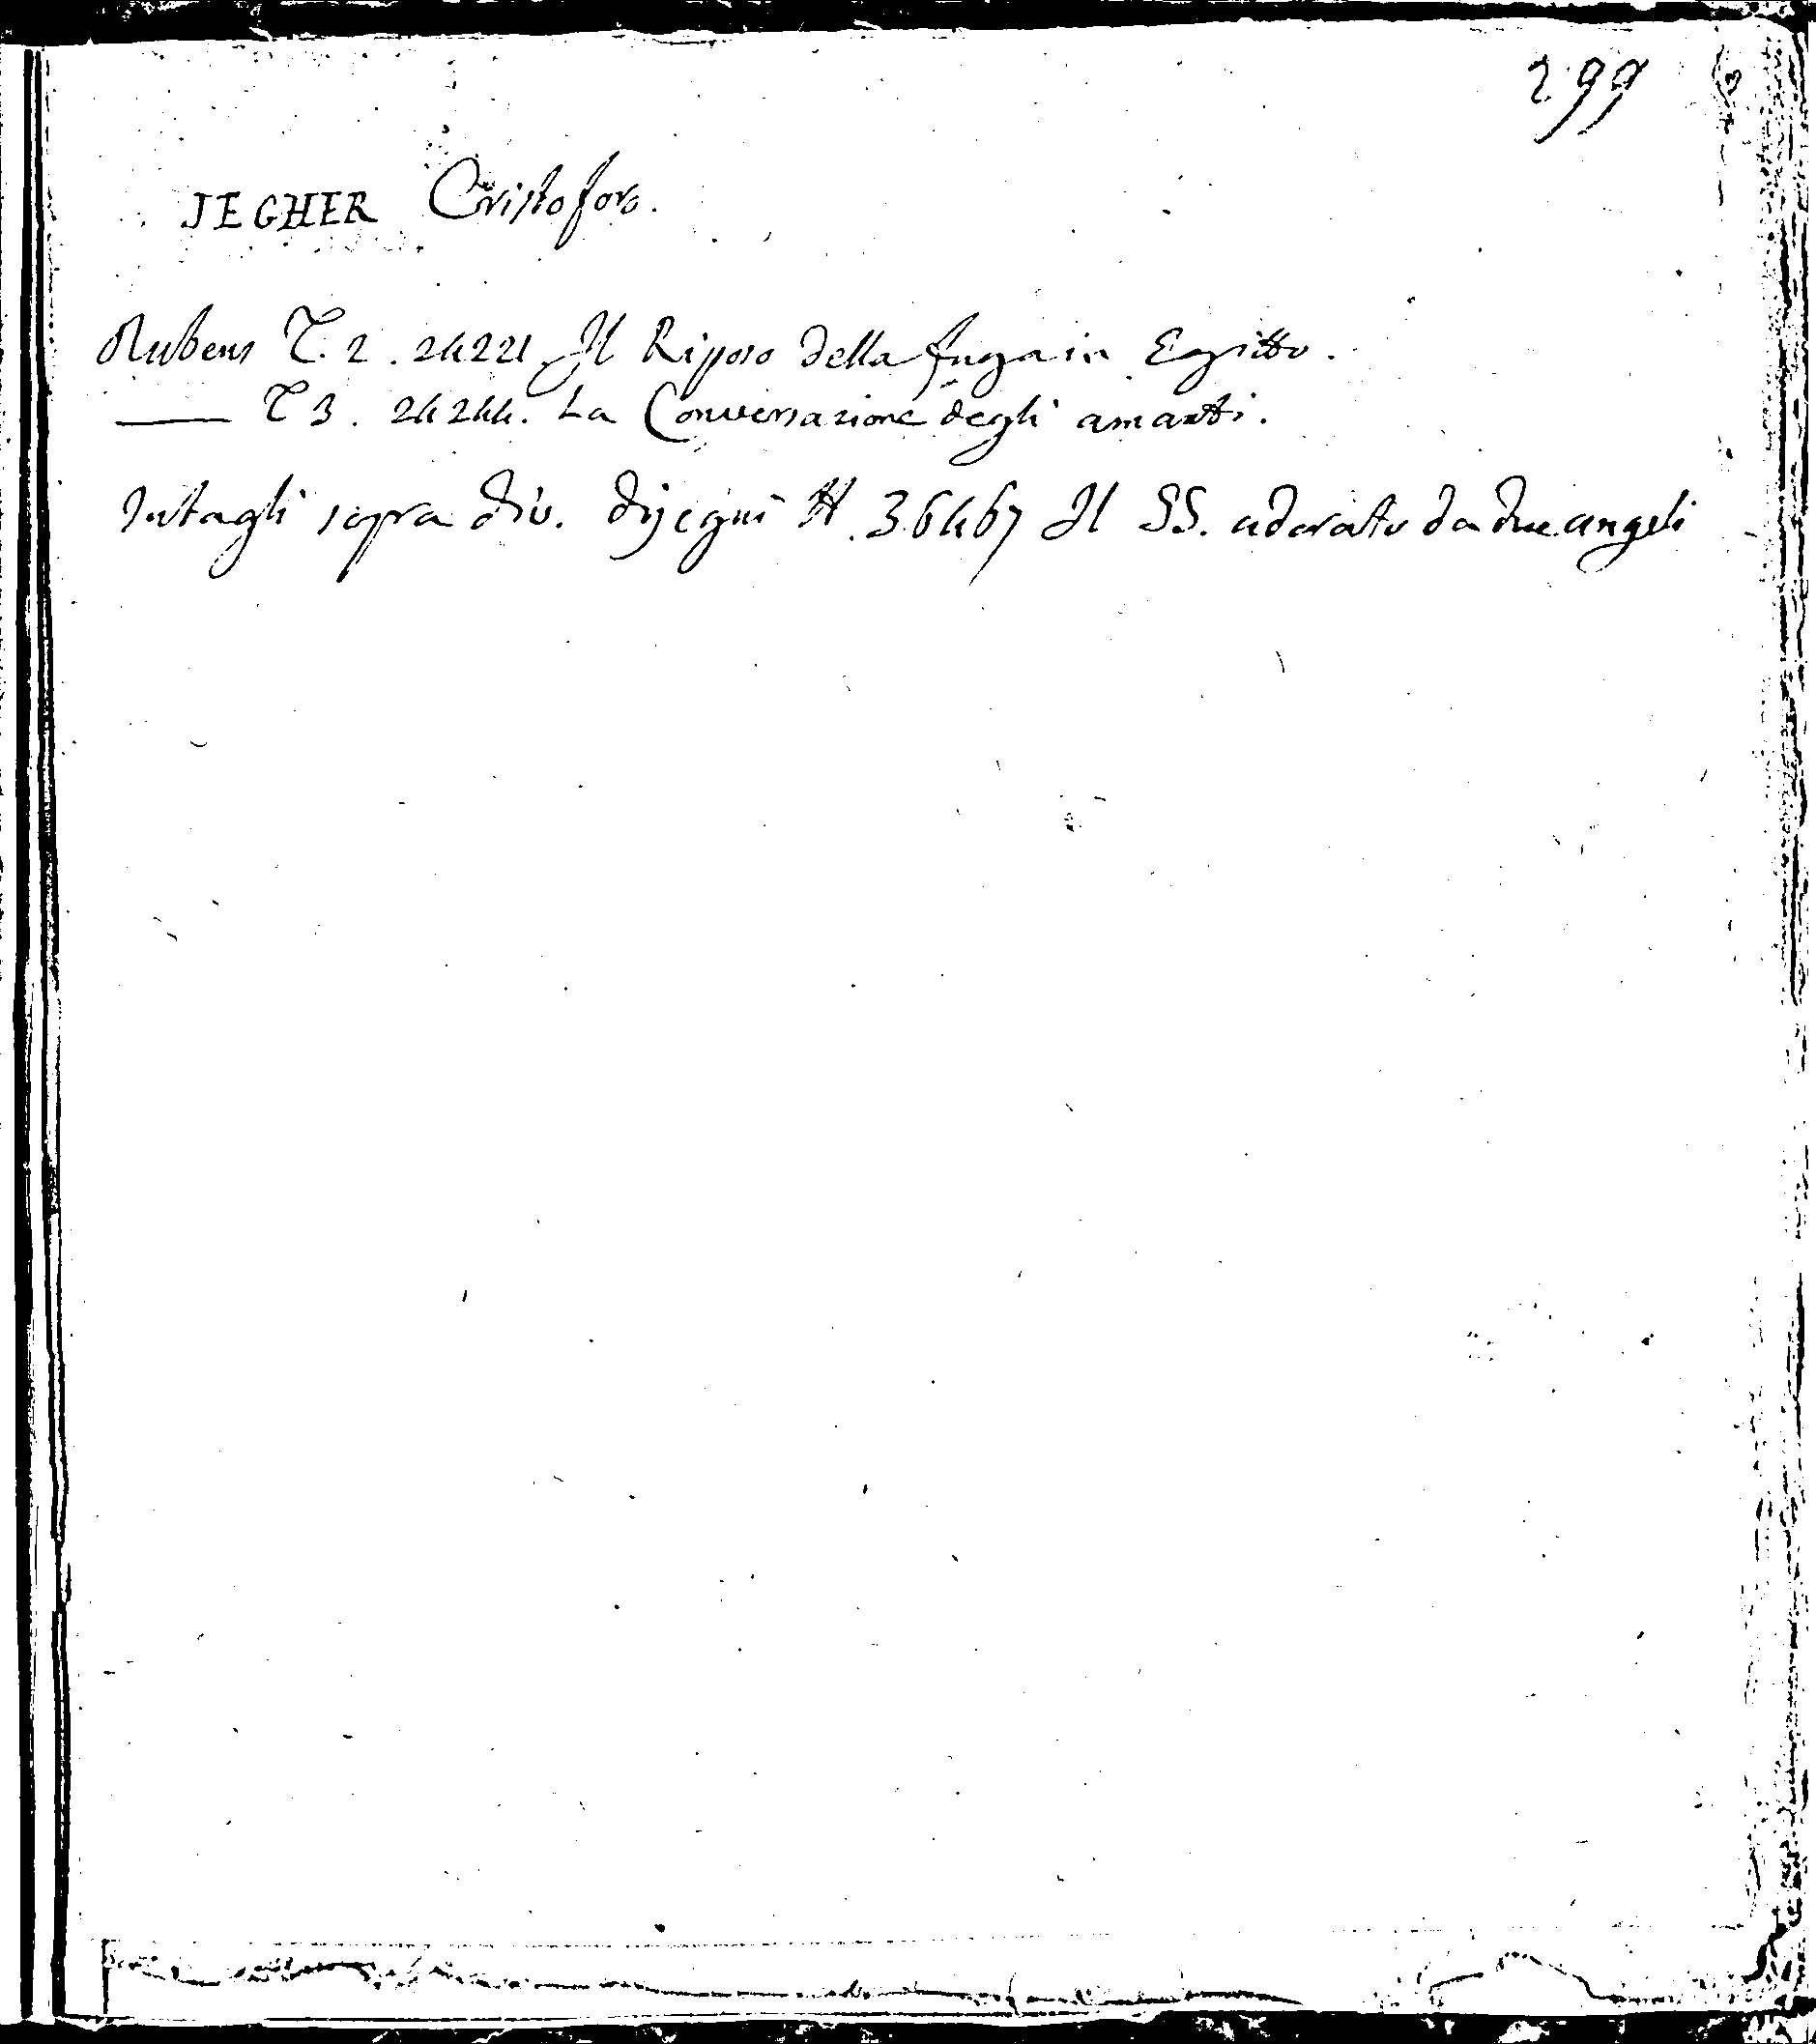 299
JEGHER Cristoforo.
Rubens T. 2. 24221 Il Riposo della fuga in Egitto.
—— T 3. 24244. La Conversazione degli amanti.
Intagli sopra div. disegni H. 36467 Il SS. adorato da due angeli